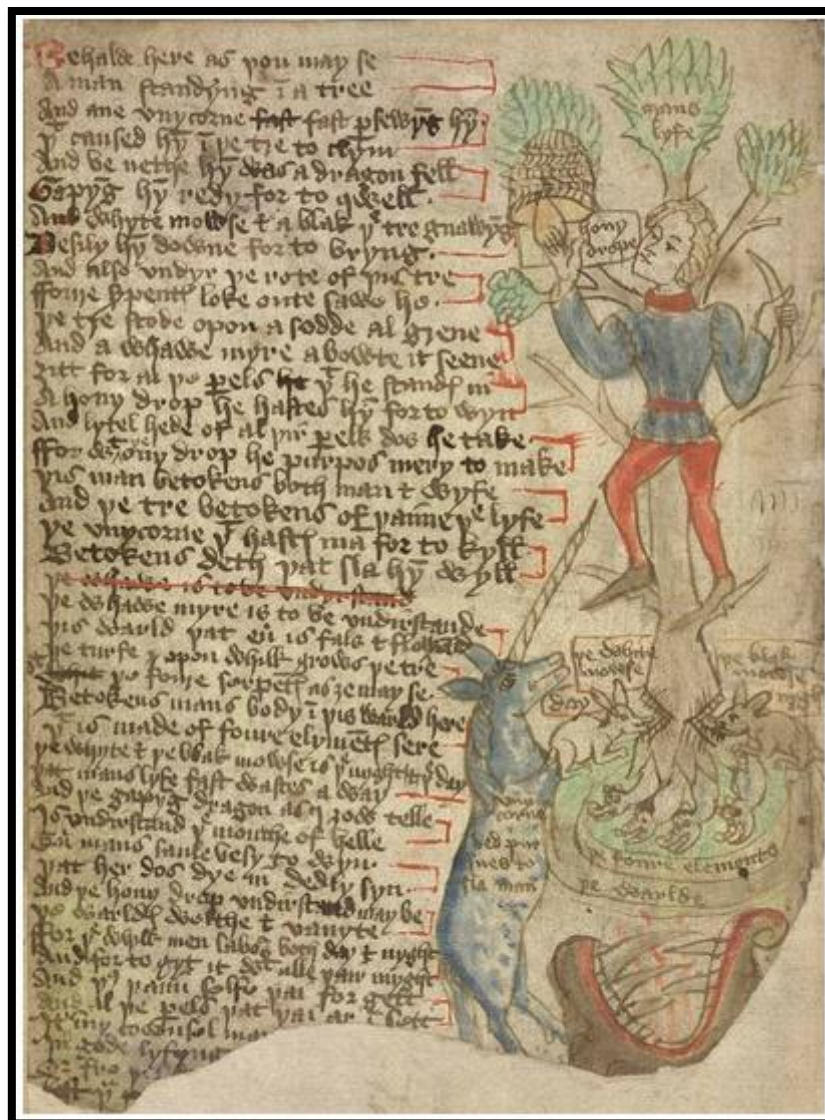 Behalde here as you may se
A man standyng ī a tree
And ane vnycorne fast fast psewyg hȳ
yt caused hȳ ī þe tre to clym
And be nethe hȳ was a dragon fell
Gapyg hȳ redy for to qwell
And whyte mowse & a blak yt tre gnawyg
Besily hȳ downe for to bryng
And also vndyr þe rote of þis tre
ffowre serpentes loke oute sawe he
þe tre stode opon a sodde al grene
And a whawe myre abowte it seene
Zitt for al þe pels yt he standes in
A hony drop he hastes hȳ for to wyn
And lytel hede of al þir pels dos he take
ffor þe hony drop he purpos mery to make
þis man betokens both man & wyfe
And þe tre betokens of þe lyfe
þe vnycorne yt hastes ma for to kyll
Betokens deth þat sla hȳ wyll
þe whawe is to be vndirstande
þe whawe myre is to be vndirstande
þis warld þat eū is fals &
þe turfe opon whilk grows þe tre
þe fowre serpentes as ze may se
Betokens mans body ī þis warld here
yt is made of fowre elymentes sere
þe whyte & þe blak mowse is þe nyght & þe day
þat mans lyfe fast wastes away
And þe gapyg dragon as I zow telle
Is vndirstand þe mouthe of helle
mans saule besy to wyn
þat her dos dye in dedly syn
And þe hony drop vndirstand may be
þe warldes welthe & vanyte
For þe whilk men labors both day & nyght
And for to gyt it with alle þair myght
And þair selfe þai for gett
And al þe pels þat þai ar ī sett
my counsel
In gode lyfyng
mans
lyfe
hony
drope
þe whyte
mowse
day
þe blak
mowse
nyght
vnycorne
ded pursues to
sla man
þe fowre elements
þe warlde